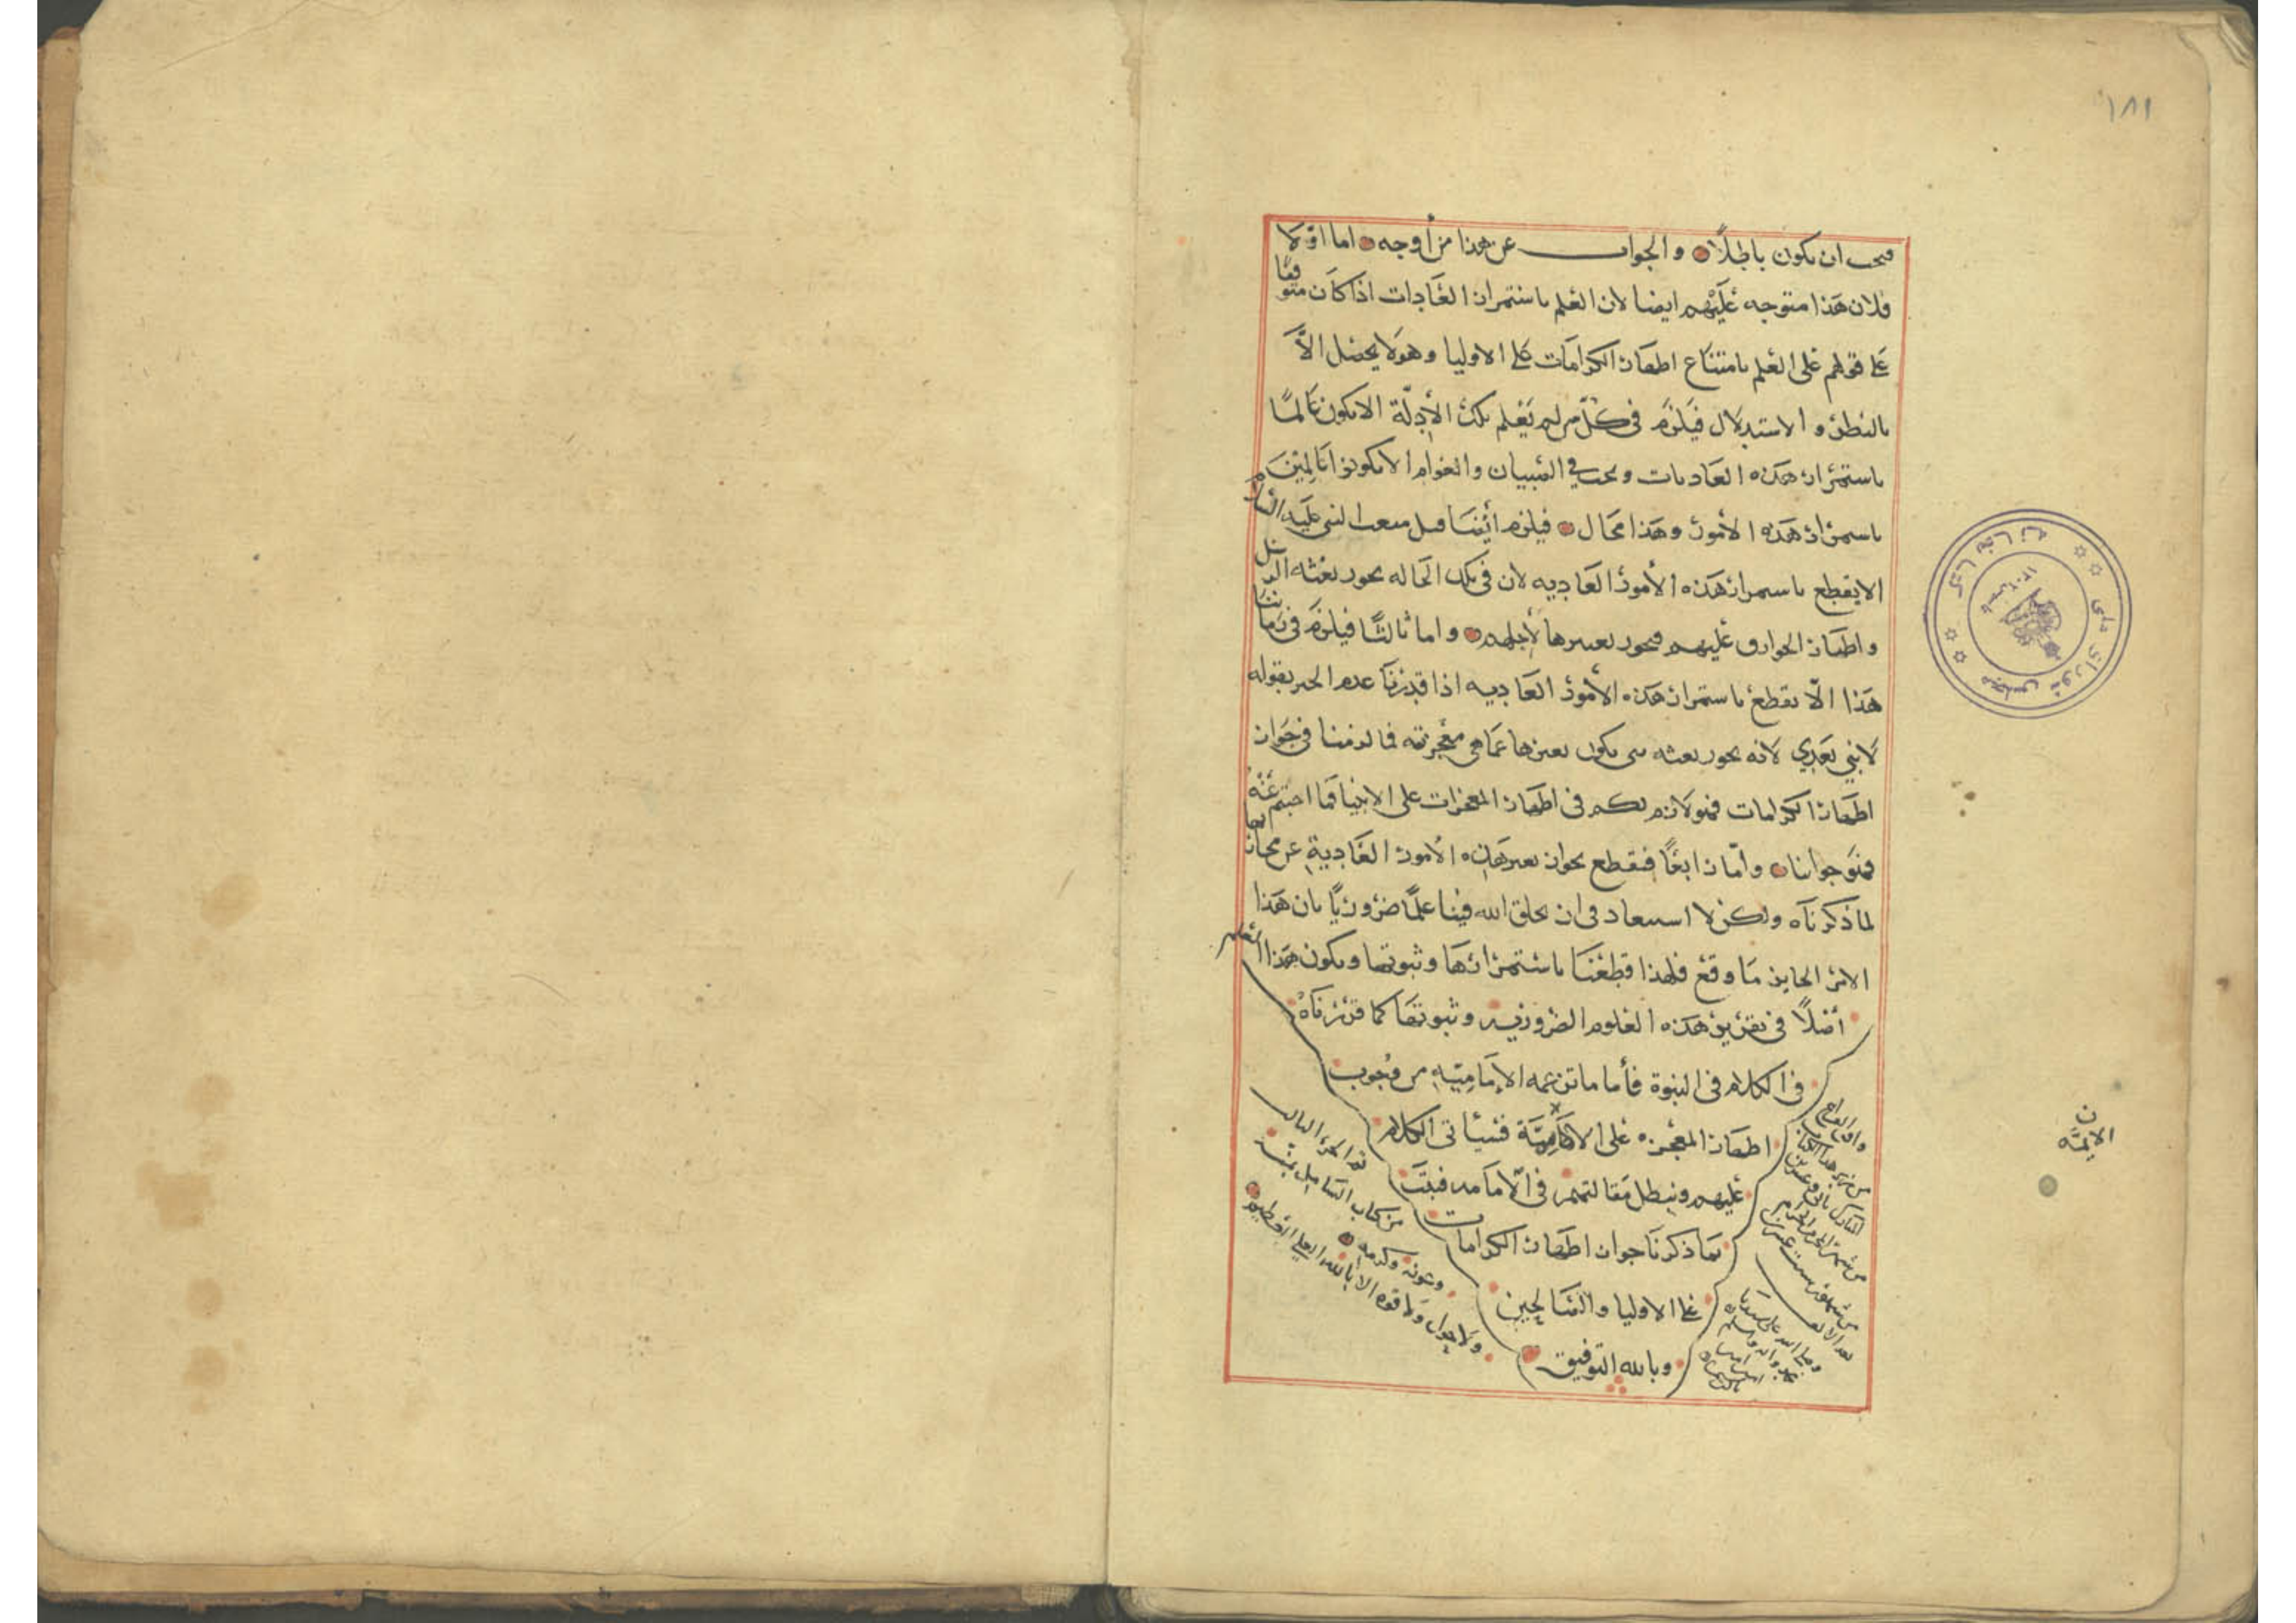 ١٨١
فيجب ان يكون باطلًا والجواب عن هذا من أوجه اما اوّلا
فلان هذا متوجه عليهم ايضا لان العلم باستمرار العادات اذا كان متوقفا
على قولهم على العلم بامتناع اظهار الكرامات على الاوليا وهو لا يحصل الّا
بالنظر والاستدلال فيلزم في كل من لم يعلم تلك الأدلّة الا يكون عالمًا
باستمرار هذه العاديات ويجب في الصبيان والعوام الا يكونوا عالمين
باستمرار هذه الأمور وهذا محال فيلزم ايضا قبل مبعث النبي عليه السلام
الا يقطع باستمرار هذه الأمور العاديه لان في تلك الحاله يجوز بعثه الرسل
واظهار الخوارق عليهم فيجوز تغييرها لأجلهم واما ثالثًا فيلزم في زماننا
هذا الّا نقطع باستمرار هذه الأمور العاديه اذا قدرنا عدم الخبر بقوله
لا نبي بعدي لانه يجوز بعثه نبي يكون تغييرها عما هي معجزته فما لزمنا في جواز
اظهار الكرامات فهو لازم لكم في اظهار المعجزات على الانبيا فما اجبتم عنه
فهو جوابنا وأمّا رابعًا فنقطع بجواز تغير هذه الأمور العادية عن مجاريها
لما ذكرناه ولكن لا استبعاد في ان يخلق الله فينا علمًا ضروريًا بان هذا
الامر الجايز ما وقع فلهذا قطعنا باستمرارها وثبوتها ويكون هذا العلم
أصلًا في تقرير هذه العلوم الضروريه وثبوتها كما قررناه
في الكلام في النبوة فأما ما تزعمه الإمامية من وجوب
اظهار المعجزه على الامامية فسيأتي الكلام
عليهم ونبطل مقالتهم في الّامامه فثبت
بما ذكرنا جواز اظهار الكرامات
على الاوليا والصالحين
وبالله التوفيق
تم الجزء الثالث
من كتاب الشامل بمنّه
وعونه وكرمه
ولا حول ولا قوه الا بالله العلي العظيم
وافق الفراغ
من هذا الكتاب
المبارك
من شهر الحرام
من شهور سنت
بعد الالف
وصلى الله على سيدنا
محمد واله وسلم
ن
الايمّه
كتابخانه مجلس شوراى ملى